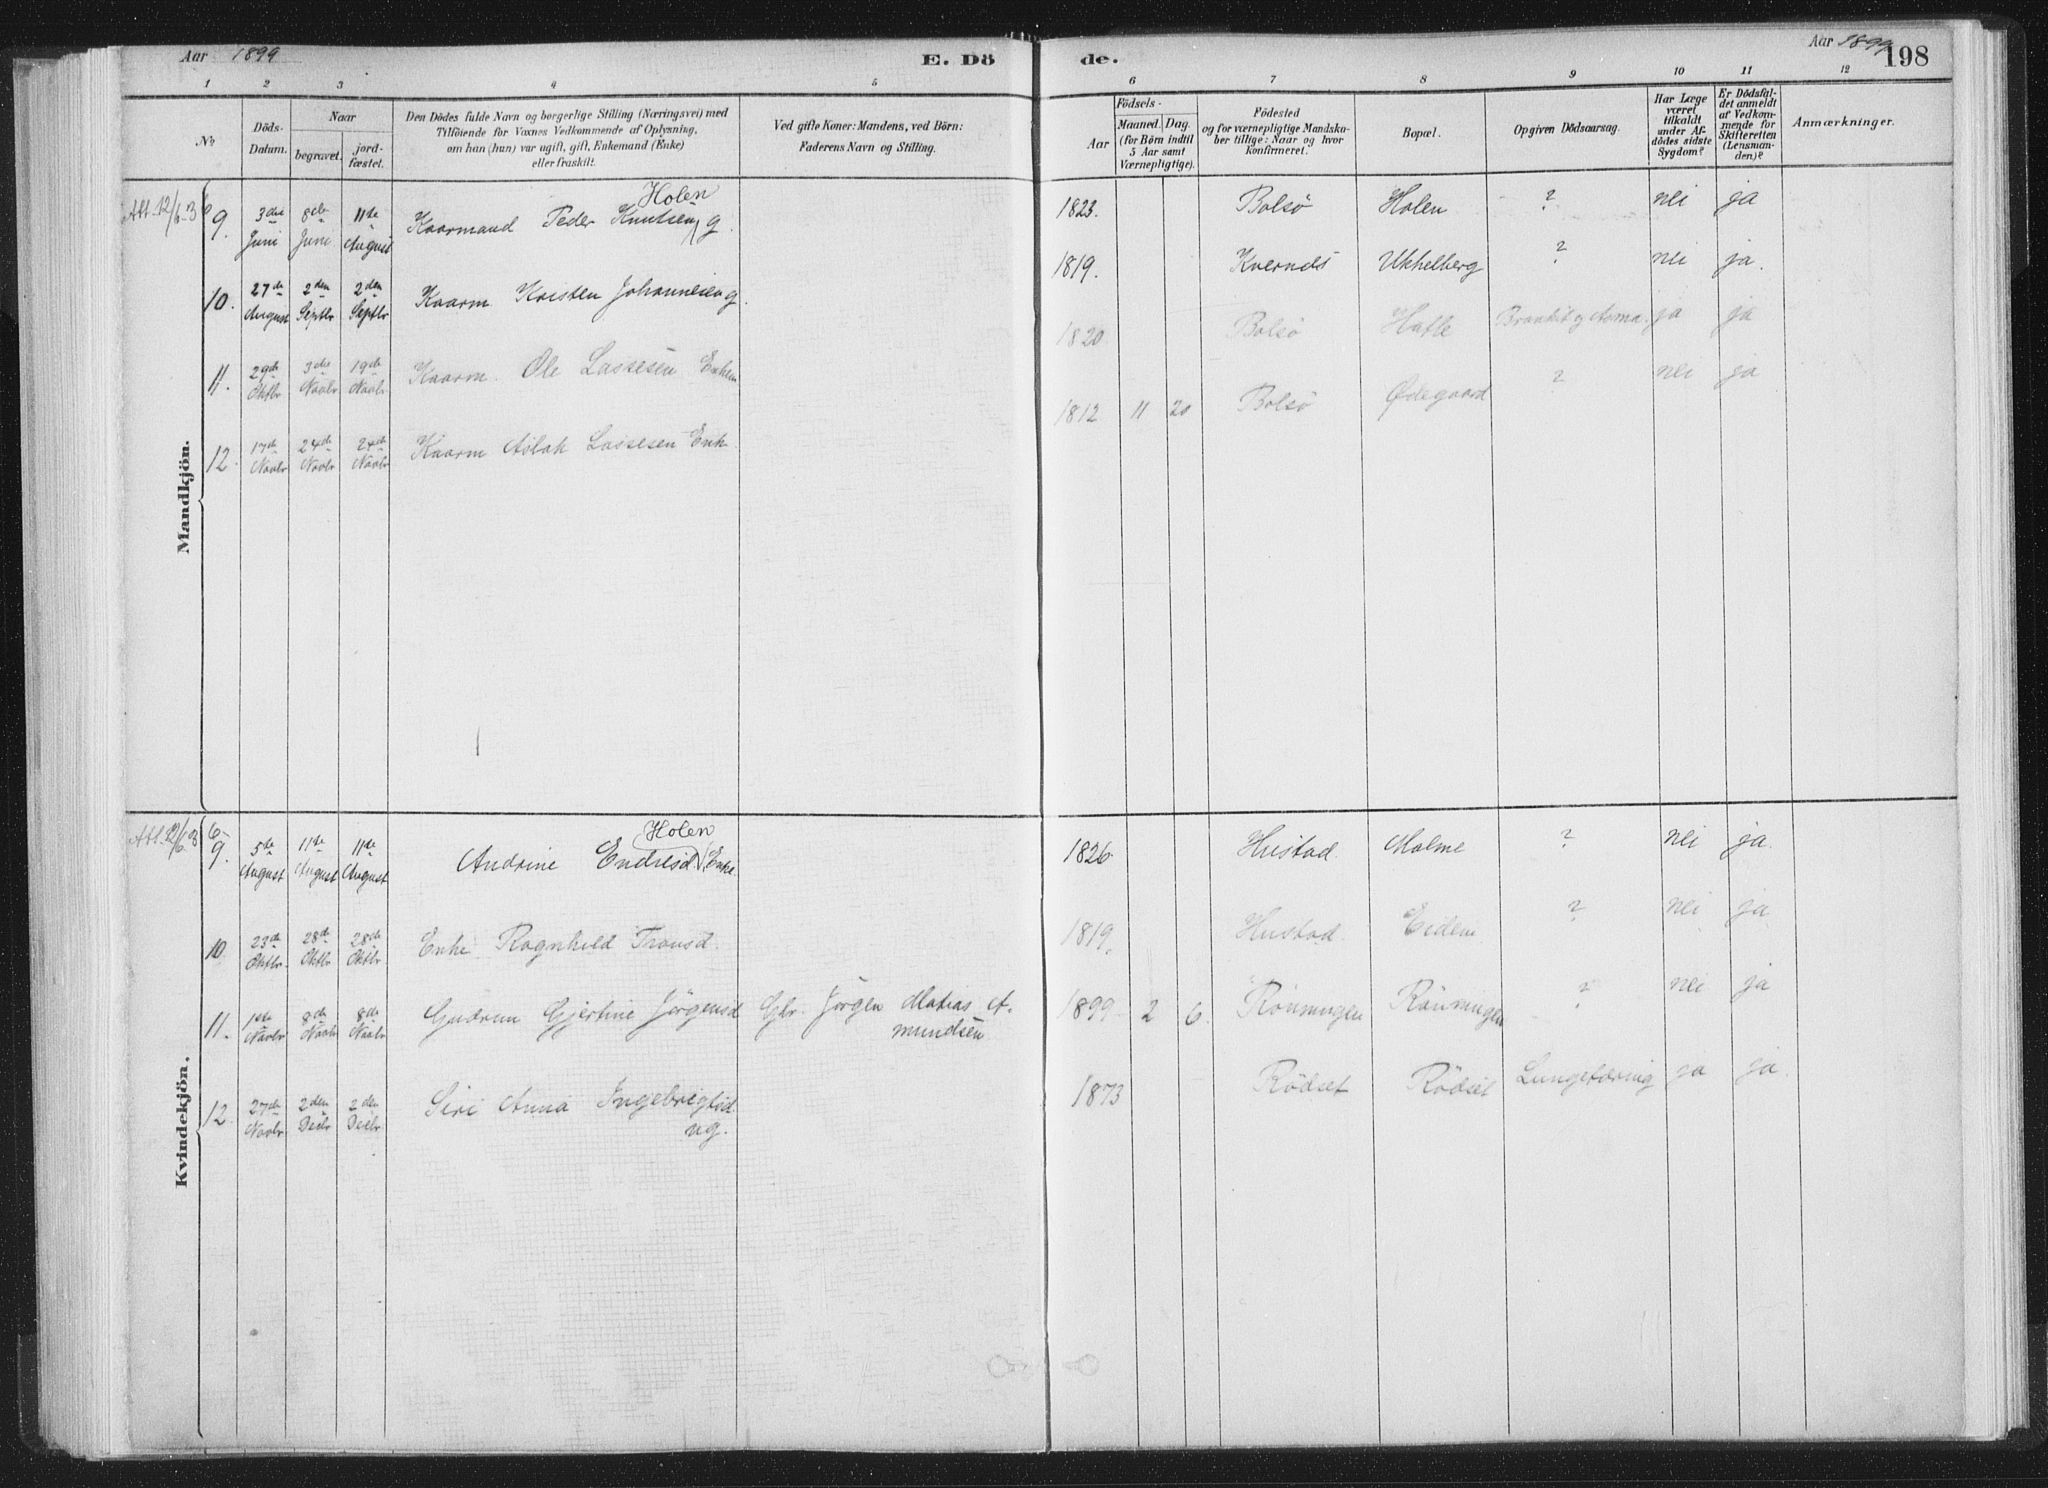 Aar 1899
E. Döde.
Aar 1899
198
1 2 3 4 5 6 7 8 9 10 11 12
No
Döds-Datum.
Naar
begravet.
jordfæstet.
Den Dödes fulde Navn og borgerlige Stilling (Næringsvei) med
Tilföiende for Voxnes Vedkommende af Oplysning,
om han (hun) var ugift, gift, Enkemand (Enke)
eller fraskilt.
Ved gifte Koner: Mandens, ved Börn:
Faderens Navn og Stilling.
Födsels-
Aar
Maaned.
Dag
(for Börn indtil
5 Aar samt
Værnepligtige).
Födested
og for værnepligtige Mandskaber
tillige: Naar og hvor
konfirmeret.
Bopæl.
Opgiven Dödsaarsag.
Har Læge
været
tilkaldt
under Afdödes
sidste
Sygdom?
Er Dödsfaldet
anmeldt
af Vedkommende
for
Skifteretten
(Lensmanden)?
Anmærkninger.
Mandkjön.
Att. 12/6-36
9. 3die Juni 8de Juni 11te August Kaarmand Peder Knutsen Holen g. 1823. Bolsø Holen ? nei ja
10. 27de August 2den Septbr 2den Septbr Kaarm. Kristen Johannesen g. 1819. Kvernæs Ukkelberg ? nei ja.
11. 29de Oktbr 3die Novbr 19de Novbr Kaarm. Ole Lassesen Enkem 1820 Bolsø Hatle Bronkit og Asma. ja ja
12. 17de Novbr 24de Novbr 24de Novbr Kaarm Aslak Lassesen Enk. 1812 11 20 Bolsø Ødegaard ? nei ja
Kvindekjön.
9. 5te August 11te August 11te August Andrine Endresd. Holen Enke. 1826. Hustad Malme ? nei ja.
10. 23de Oktbr. 28de Oktbr 28de Oktbr. Enke Ragnhild Tronsd. 1819. Hustad. Eidem ? nei ja
11. 1ste Novbr 8de Novbr 8de Novbr Gudrun Gjertine Jørgensd Gbr. Jørgen Matias Amundsen 1899 2 6. Rönningen Rönningen ? nei ja
12. 27de Novbr. 2den Decbr 2den Decbr Siri Anna Ingebrigtsd ug. 1873 Rödset Rödset Lungetæring ja ja.